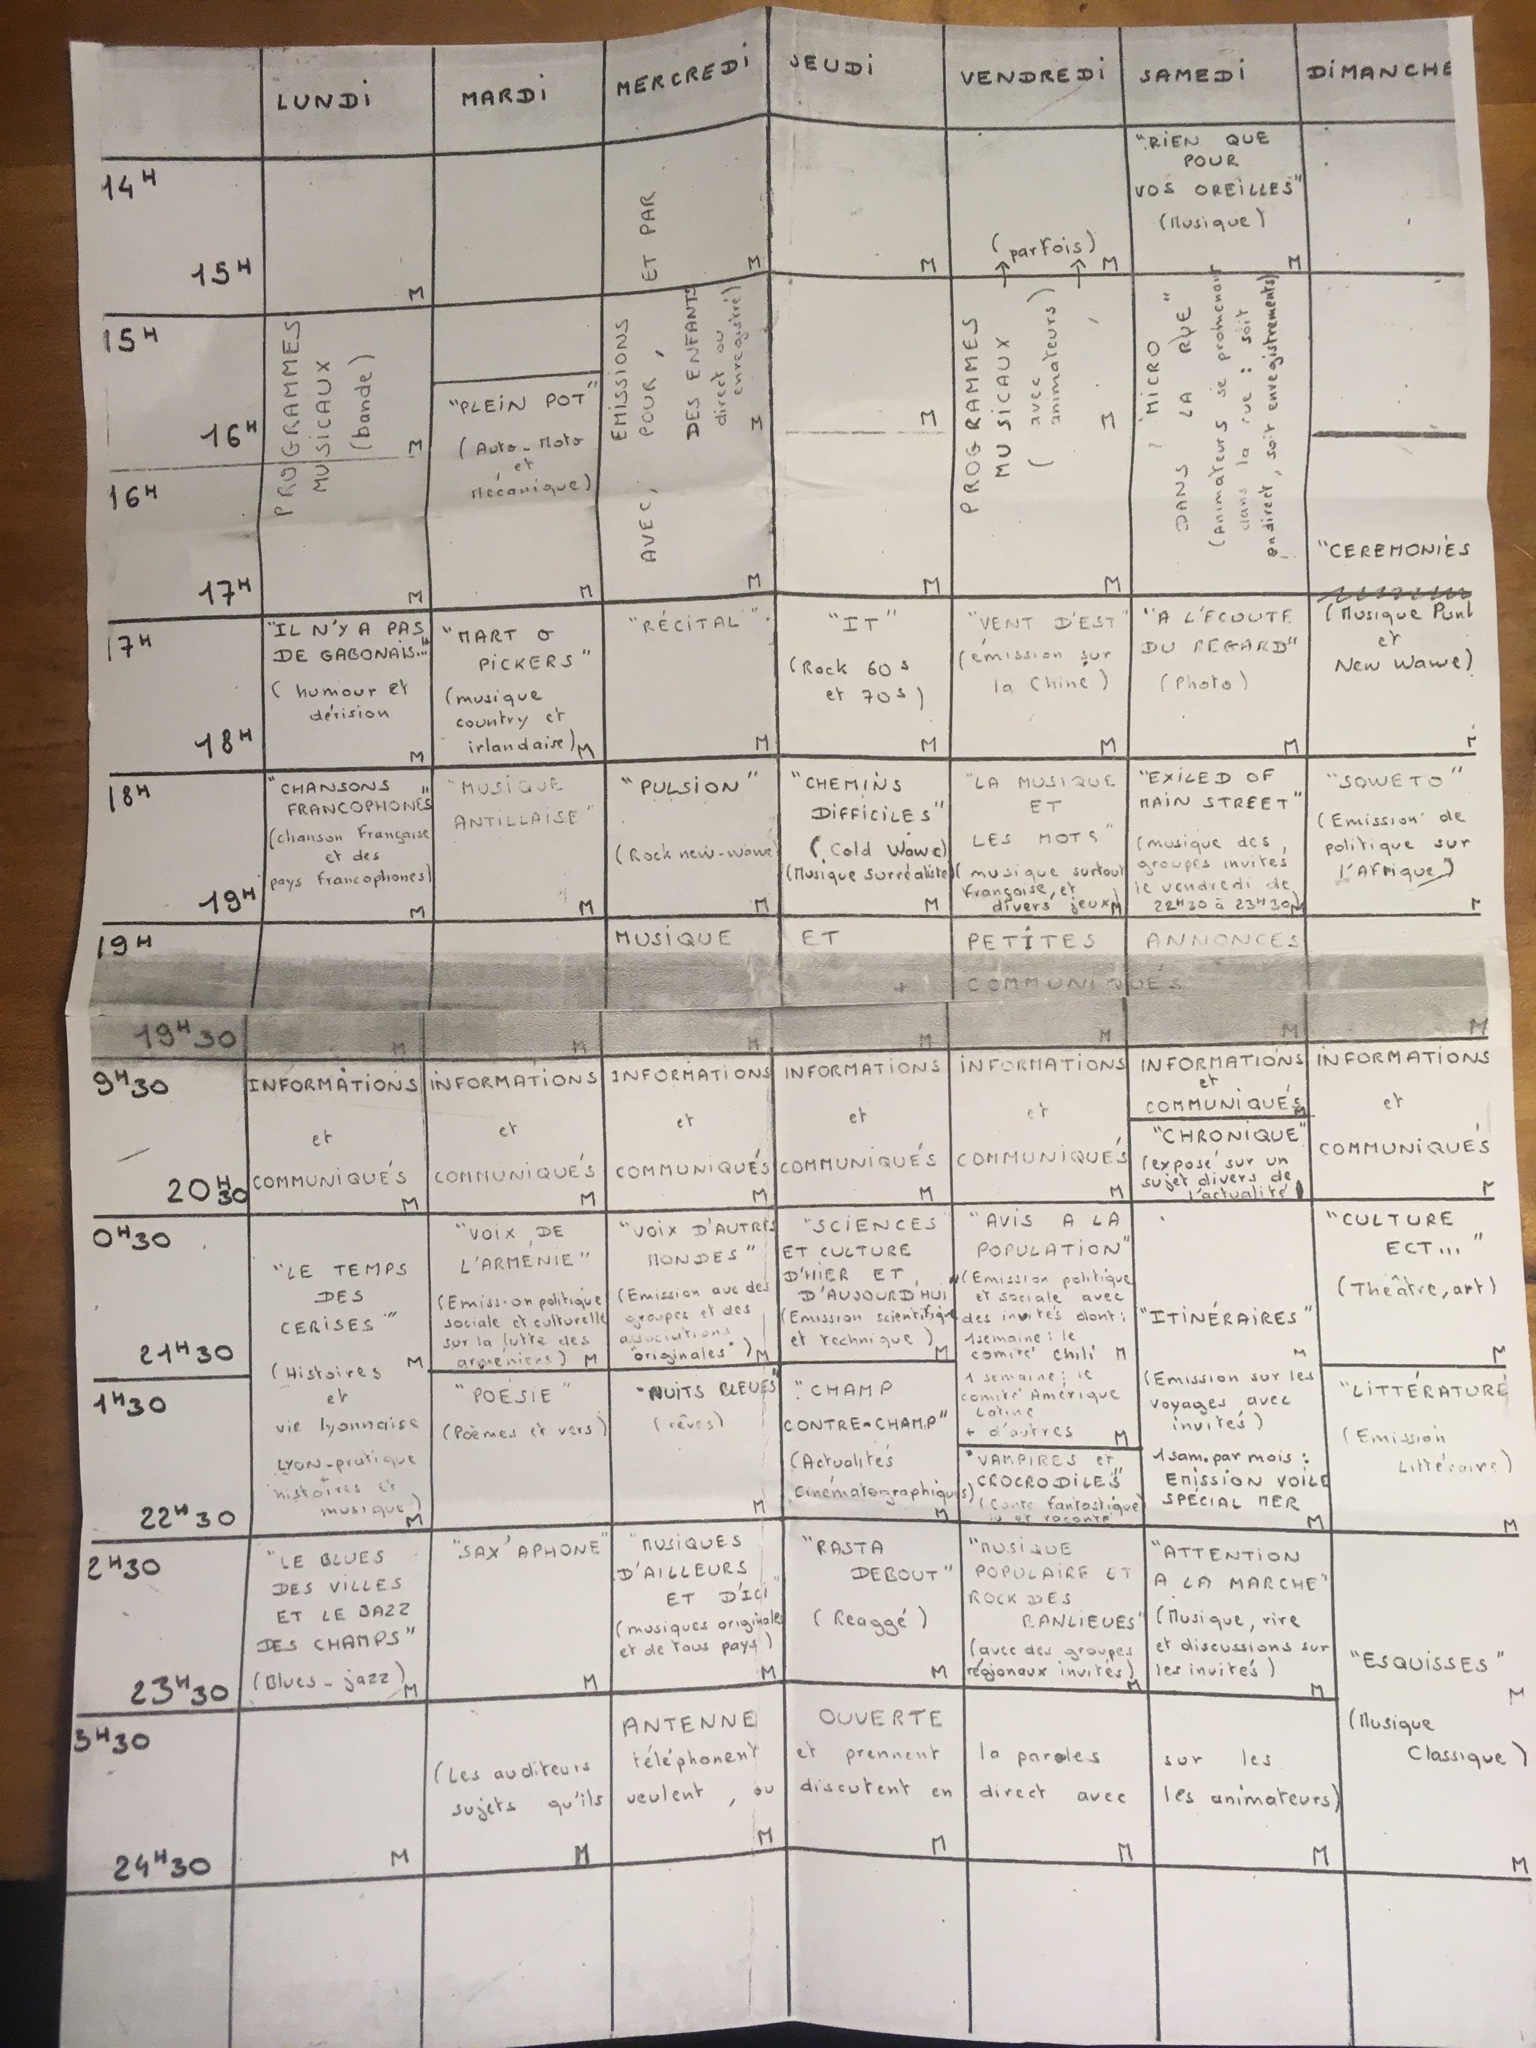 LUNDI MARDI MERCREDI JEUDI VENDREDI SAMEDI DIMANCHE
14H
15H
M
M
M
(parfois)
M
"RIEN QUE
POUR
VOS OREILLES"
(Musique)
M
15H
16H
16H
17H
PROGRAMMES
MUSICAUX
(bande)
M
M
"PLEIN POT"
(Auto-Moto
et
Mécanique)
M
EMISSIONS
POUR,
AVEC,
ET PAR
DES ENFANTS
direct ou
enregistré)
M
M
M
M
PROGRAMMES
MUSICAUX
(avec
animateurs)
M
M
"MICRO
DANS LA RUE"
(Animateurs se promenant
dans la rue : soit
en direct, soit enregistrements)
"CEREMONIES
(Musique Punk
et
New Wawe)
M
17H
18H
"IL N'Y A PAS
DE GABONAIS..."
(humour et
dérision
M
"MART O
PICKERS"
(musique
country et
irlandaise)
M
"RÉCITAL"
M
"IT"
(Rock 60s
et 70s)
M
"VENT D'EST"
(émission sur
la Chine)
M
"A L'ÉCOUTE
DU REGARD"
(Photo)
M
18H
19H
"CHANSONS
FRANCOPHONES"
(chanson Française
et des
pays francophones)
M
"MUSIQUE
ANTILLAISE"
M
"PULSION"
(Rock new-wawe)
M
"CHEMINS
DIFFICILES"
(Cold Wawe)
(Musique Surréaliste)
M
"LA MUSIQUE
ET
LES MOTS"
(musique surtout
Française, et
divers jeux)
M
"EXILED OF
MAIN STREET"
(musique des
groupes invités
le vendredi de
22H30 à 23H30)
M
"SOWETO"
(Emission de
politique sur
l'Afrique)
M
19H
19H30
MUSIQUE ET PETITES ANNONCES
+ COMMUNIQUÉS
M M M M M M M
9H30
20H30
INFORMATIONS
et
COMMUNIQUÉS
M
INFORMATIONS
et
COMMUNIQUÉS
M
INFORMATIONS
et
COMMUNIQUÉS
M
INFORMATIONS
et
COMMUNIQUÉS
M
INFORMATIONS
et
COMMUNIQUÉS
M
INFORMATIONS
et
COMMUNIQUÉS
M
"CHRONIQUE"
(exposé sur un
sujet divers de
l'actualité)
INFORMATIONS
et
COMMUNIQUÉS
M
0H30
21H30
1H30
22H30
"LE TEMPS
DES
CERISES"
(Histoires
M
et
vie lyonnaise
LYON-pratique
+
histoires et
musique)
M
"VOIX DE
L'ARMÉNIE"
(Emission politique
sociale et culturelle
sur la lutte des
arméniens)
M
"POÉSIE"
(Poèmes et vers)
"VOIX D'AUTRES
MONDES"
(Emission avec des
groupes et des
associations
"originales")
M
"NUITS BLEUES"
(rêves)
M
"SCIENCES
ET CULTURE
D'HIER ET
D'AUJOURD'HUI"
(Emission scientifique
et technique)
M
"CHAMP
CONTRE-CHAMP"
(Actualités
cinématographiques)
M
"AVIS A LA
POPULATION"
(Emission politique
et sociale avec
des invités dont:
1 semaine : le
comité Chili
M
1 semaine : le
comité Amérique
Latine
+ d'autres
M
"VAMPIRES et
CROCRODILES"
(Conte fantastique
lu et raconté
"ITINÉRAIRES"
M
(Emission sur les
voyages avec
invités)
1 sam. par mois :
EMISSION VOILE
SPÉCIAL MER
M
"CULTURE
ECT..."
(Théâtre, art)
M
"LITTÉRATURE
(Emission
Littéraire)
M
2H30
23H30
"LE BLUES
DES VILLES
ET LE JAZZ
DES CHAMPS"
(Blues-jazz)
M
"SAX'APHONE"
M
"MUSIQUES
D'AILLEURS
ET D'ICI"
(musiques originales
et de tous pays)
M
"RASTA
DEBOUT"
(Reaggé)
M
"MUSIQUE
POPULAIRE ET
ROCK DES
BANLIEUES"
(avec des groupes
régionaux invités)
M
"ATTENTION
A LA MARCHE"
(Musique, rire
et discussions sur
les invités)
M
"ESQUISSES"
M
(Musique
Classique)
M
3H30
24H30
ANTENNE OUVERTE
(Les auditeurs téléphonent et prennent la paroles sur les
sujets qu'ils veulent, ou discutent en direct avec les animateurs)
M M M M M M